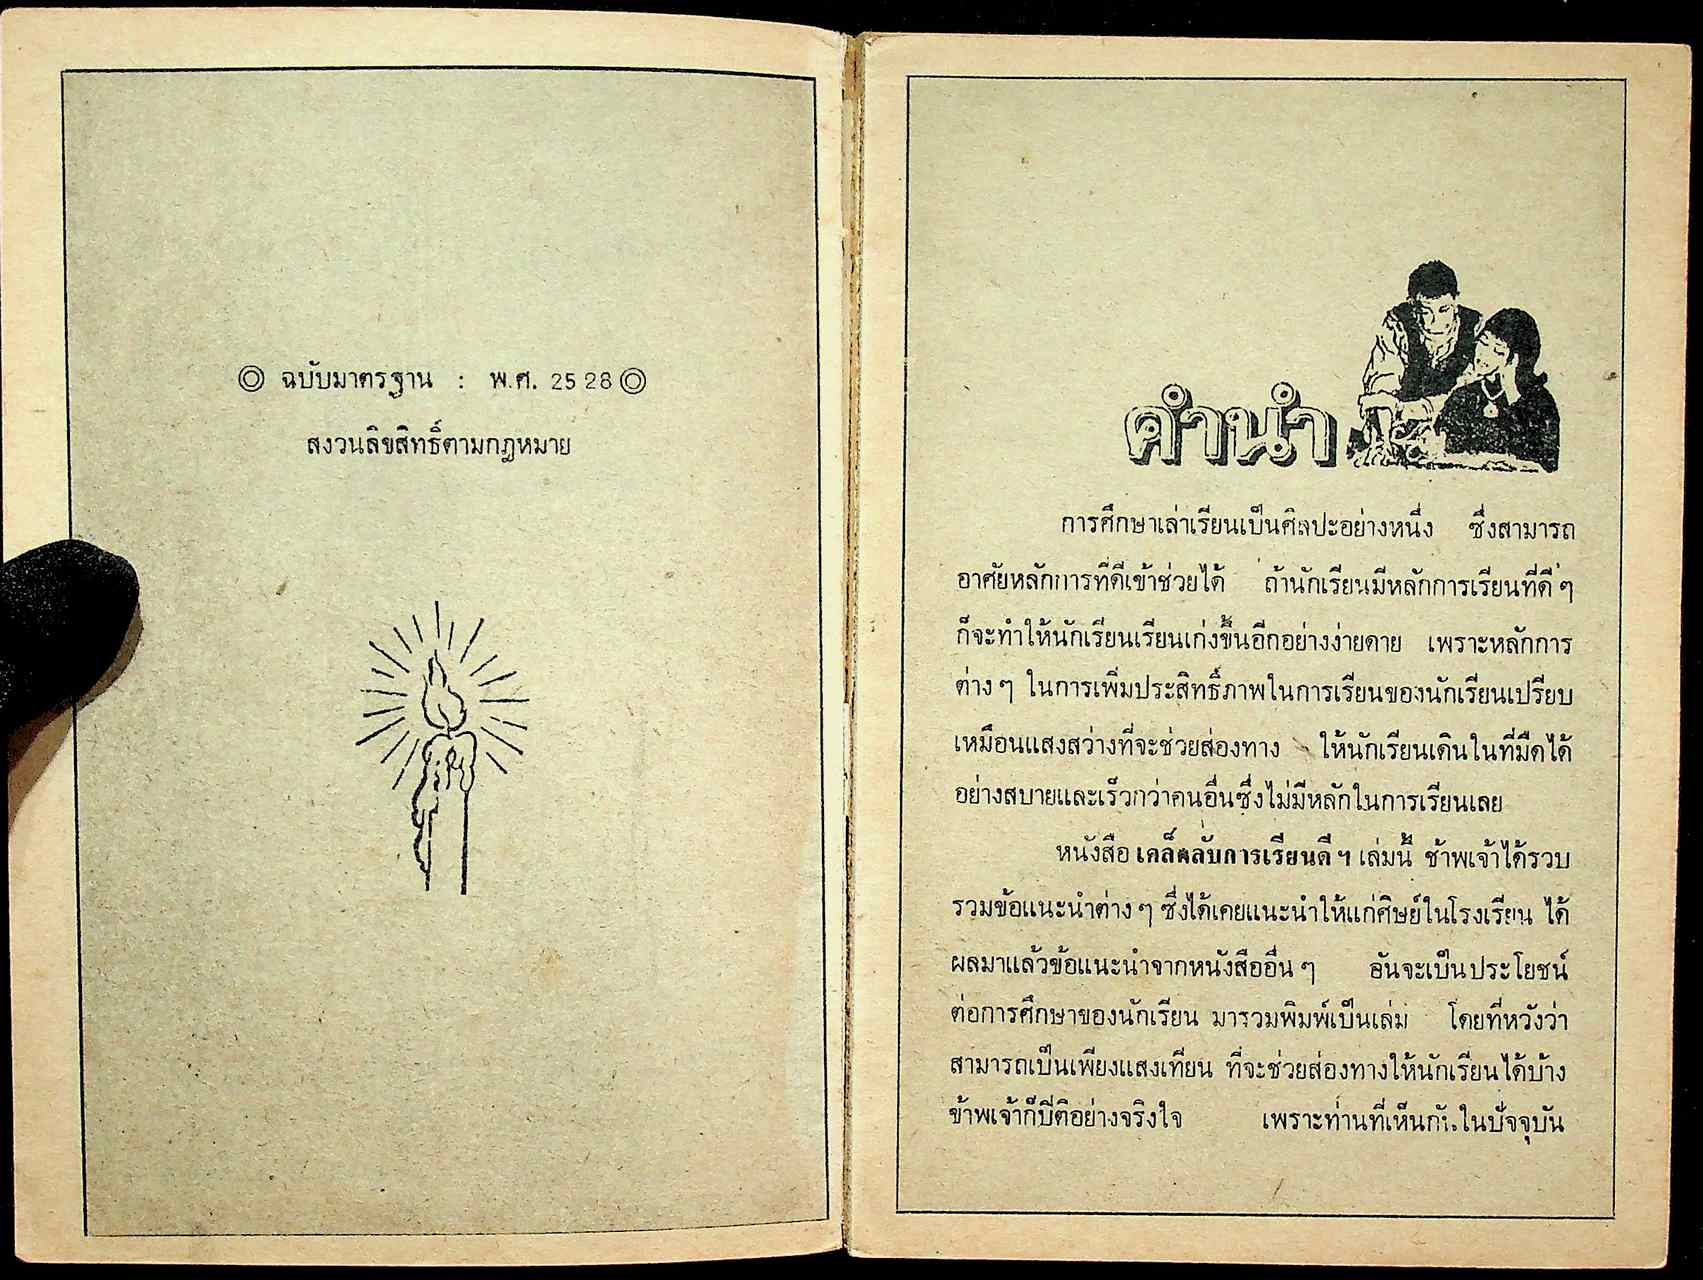 ◎ ฉบับมาตรฐาน : พ.ศ. 2528 ◎
สงวนลิขสิทธิ์ตามกฎหมาย
คำนำ
การศึกษาเล่าเรียนเป็นศิลปะอย่างหนึ่ง ซึ่งสามารถ
อาศัยหลักการที่ดีเข้าช่วยได้ ถ้านักเรียนมีหลักการเรียนที่ดี ๆ
ก็จะทำให้นักเรียนเรียนเก่งขึ้นอีกอย่างง่ายดาย เพราะหลักการ
ต่าง ๆ ในการเพิ่มประสิทธิ์ภาพในการเรียนของนักเรียนเปรียบ
เหมือนแสงสว่างที่จะช่วยส่องทาง ให้นักเรียนเดินในที่มืดได้
อย่างสบายและเร็วกว่าคนอื่นซึ่งไม่มีหลักในการเรียนเลย
หนังสือ เคล็ดลับการเรียนดี ฯ เล่มนี้ ข้าพเจ้าได้รวบ
รวมข้อแนะนำต่าง ๆ ซึ่งได้เคยแนะนำให้แก่ศิษย์ในโรงเรียน ได้
ผลมาแล้วข้อแนะนำจากหนังสืออื่น ๆ อันจะเป็นประโยชน์
ต่อการศึกษาของนักเรียน มารวมพิมพ์เป็นเล่ม โดยที่หวังว่า
สามารถเป็นเพียงแสงเทียน ที่จะช่วยส่องทางให้นักเรียนได้บ้าง
ข้าพเจ้าก็ปีติอย่างจริงใจ เพราะท่านที่เห็นกันในปัจจุบัน